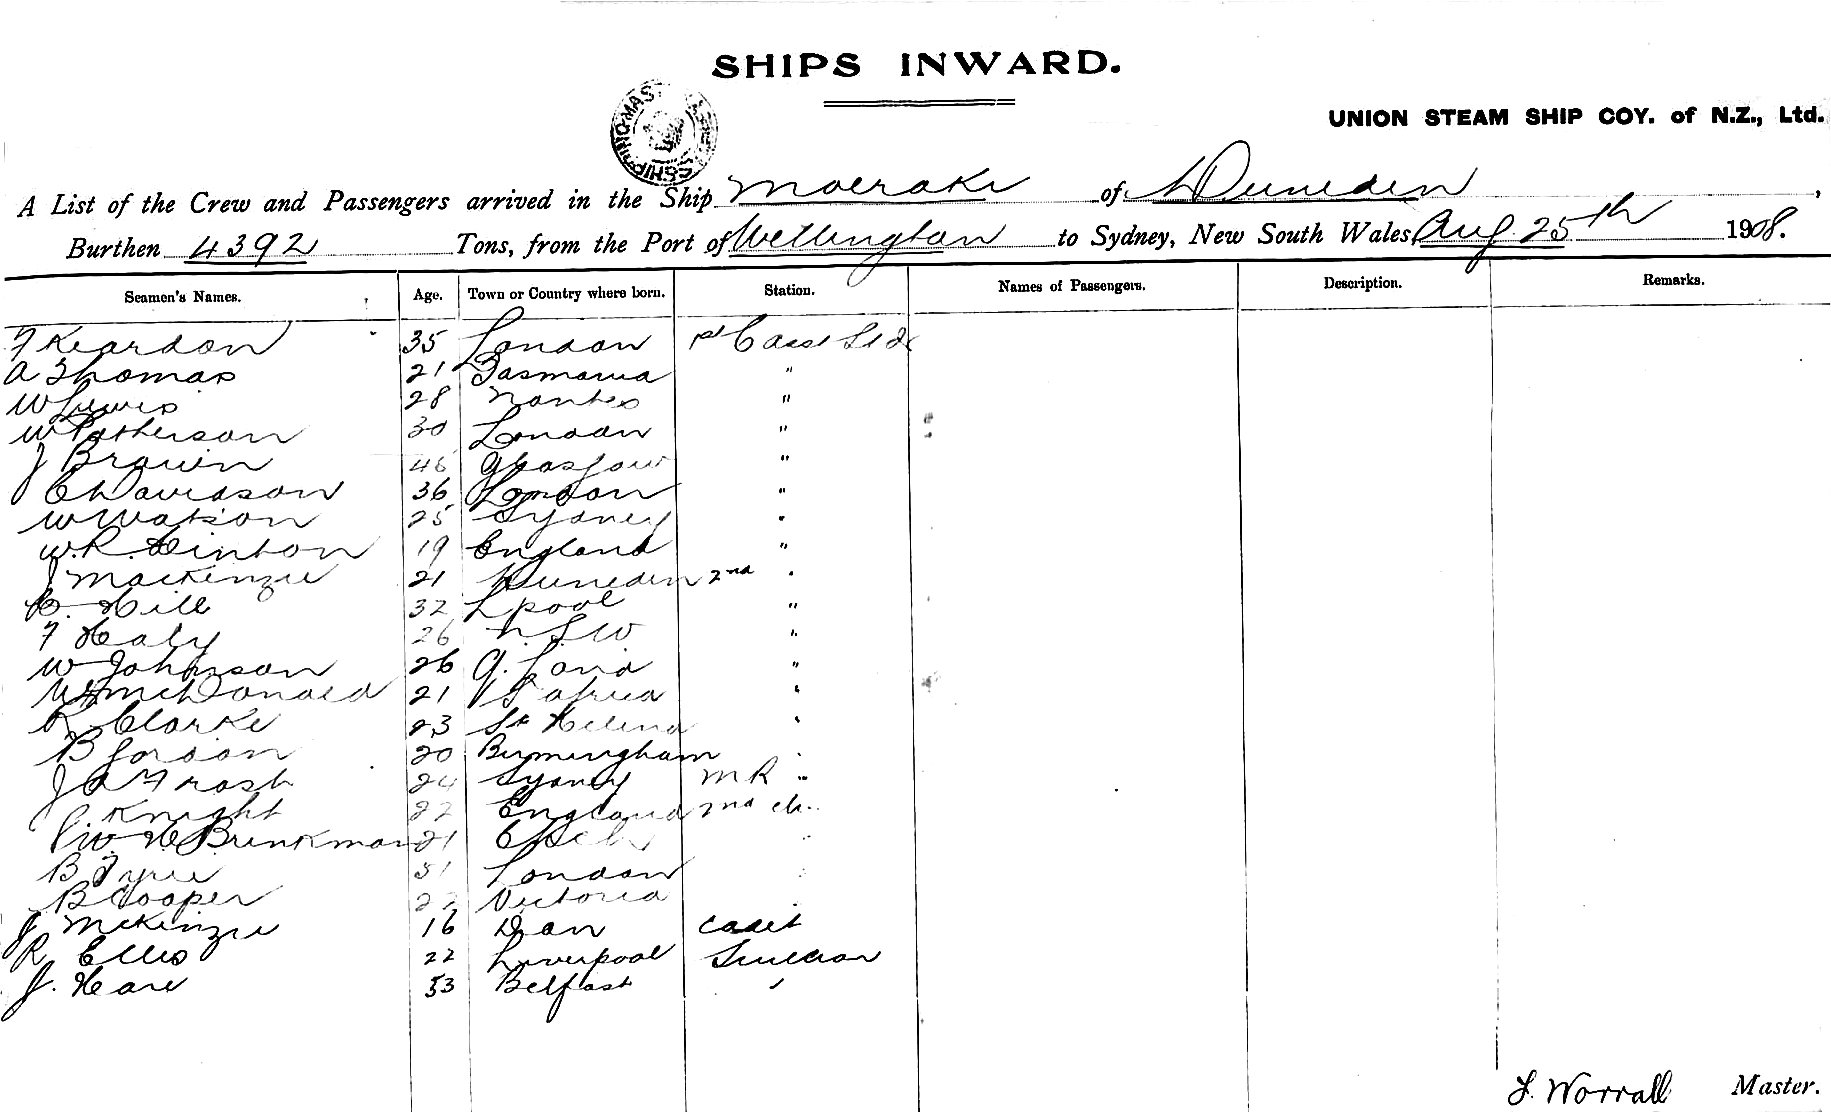 SHIPS INWARD.
SHIPPING MAST
UNION STEAM SHIP COY. of N.Z., Ltd.
A List of the Crew and Passengers arrived in the Ship Moeraki of Dunedin,
Burthen 4392 Tons, from the Port of Wellington to Sydney, New South Wales, Aug 25th 1908.
Seamen's Names. Age. Town or Country where born. Station. Names of Passengers. Description. Remarks.
F Reardon 35 London 1st Class Std
A Thomas 21 Tasmania "
W Lewis 28 "
W Patherson 30 London "
J Brown 46 Glasgow "
C Davidson 36 London "
W Watson 25 Sydney "
W.R. Hinton 19 England "
J Mackenzie 21 Dunedin 2nd "
Hill 32 Lpool "
F Healy 26 N.S.W "
W Johnson 26 "
McDonald 21 S Africa "
R Clarke 23 St Helena "
B Gordon 20 Birmingham "
J A Frost 24 Sydney M R "
Knight 22 England 2nd
W H Brinkman 21
B Tyrie 31 London
B Cooper 22 Victoria
J McKenzie 16 Dan Cadet
R Ellis 22 Liverpool
J. Hare 53 Belfast "
Worrall Master.